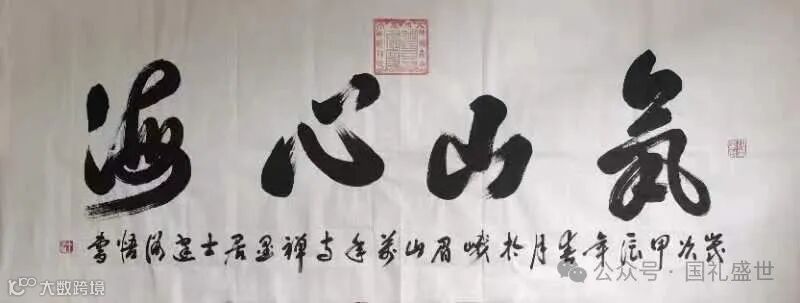 氣山心海
歲次甲辰年春月於峨眉山萬年寺禅墨居士悟書
公众号 · 国礼盛世
大数跨境